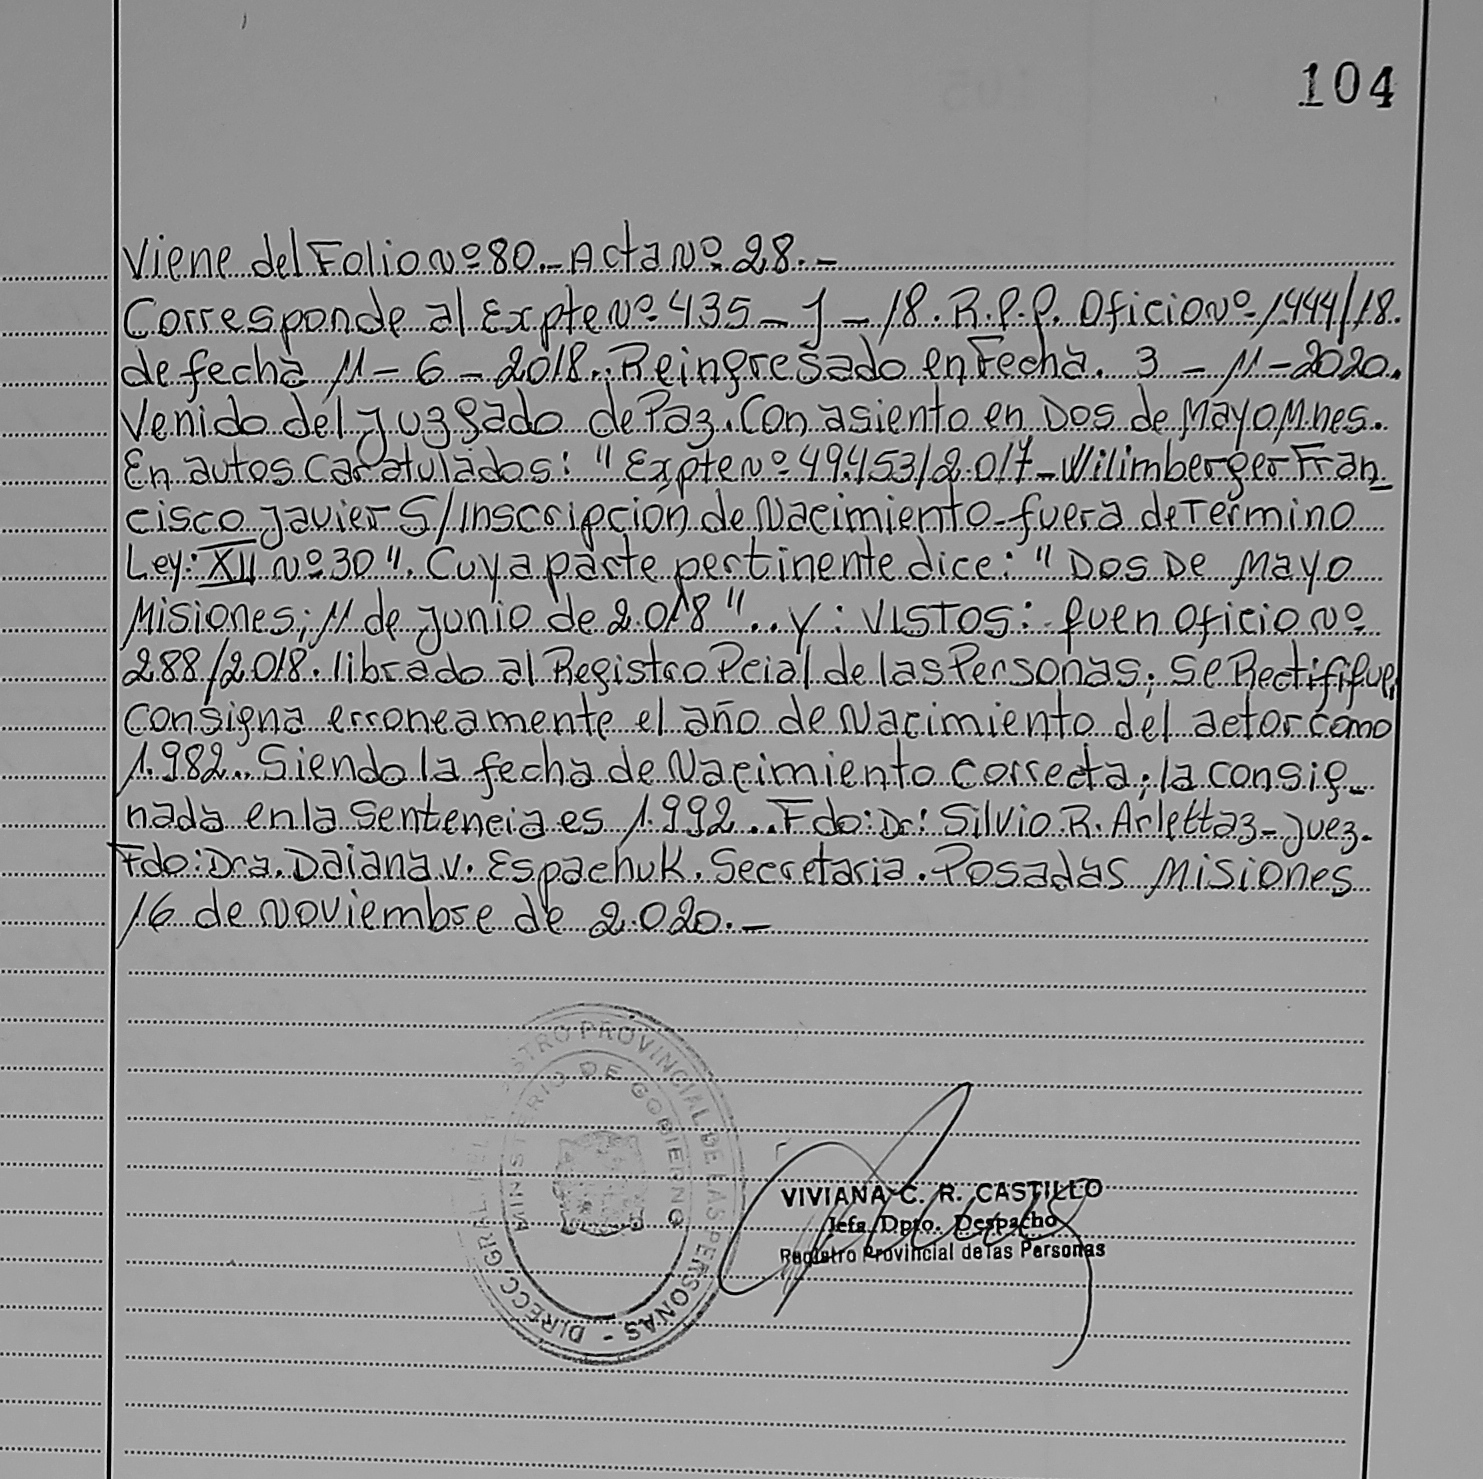 104
Viene del Folio Nº 80.- Acta Nº 28.-
Corresponde al Expte Nº 435 - J - /18. R.P.P. Oficio Nº 1444/18.
de fecha 11 - 6 - 2018. Reingresado en Fecha. 3 - 11 - 2020.
Venido del Juzgado de Paz. Con asiento en Dos de Mayo Mnes.
En autos Caratulados: "Expte Nº 49.453/2.017 - Wilimberger Fran_
cisco Javier S/Inscripción de Nacimiento fuera de Termino
Ley: XII Nº 30". Cuya parte pertinente dice: "Dos De Mayo
Misiones; 11 de Junio de 2.018".. Y: VISTOS: que en Oficio Nº
288/2.018. librado al Registro Pcial de las Personas; Se Rectifique
Consigna erroneamente el año de Nacimiento del actor como
1.982.. Siendo la fecha de Nacimiento Correcta; la consig_
nada en la Sentencia es 1.992... Fdo: Dr: Silvio R. Arlettaz - Juez.
Fdo: Dra. Daiana V. Espachuk. Secretaria. Posadas Misiones
16 de Noviembre de 2.020.-
DIRECC. GRAL. DEL REGISTRO PROVINCIAL DE LAS PERSONAS -
MINISTERIO DE GOBIERNO
VIVIANA C. R. CASTILLO
Jefa Dpto. Despacho
Registro Provincial de las Personas